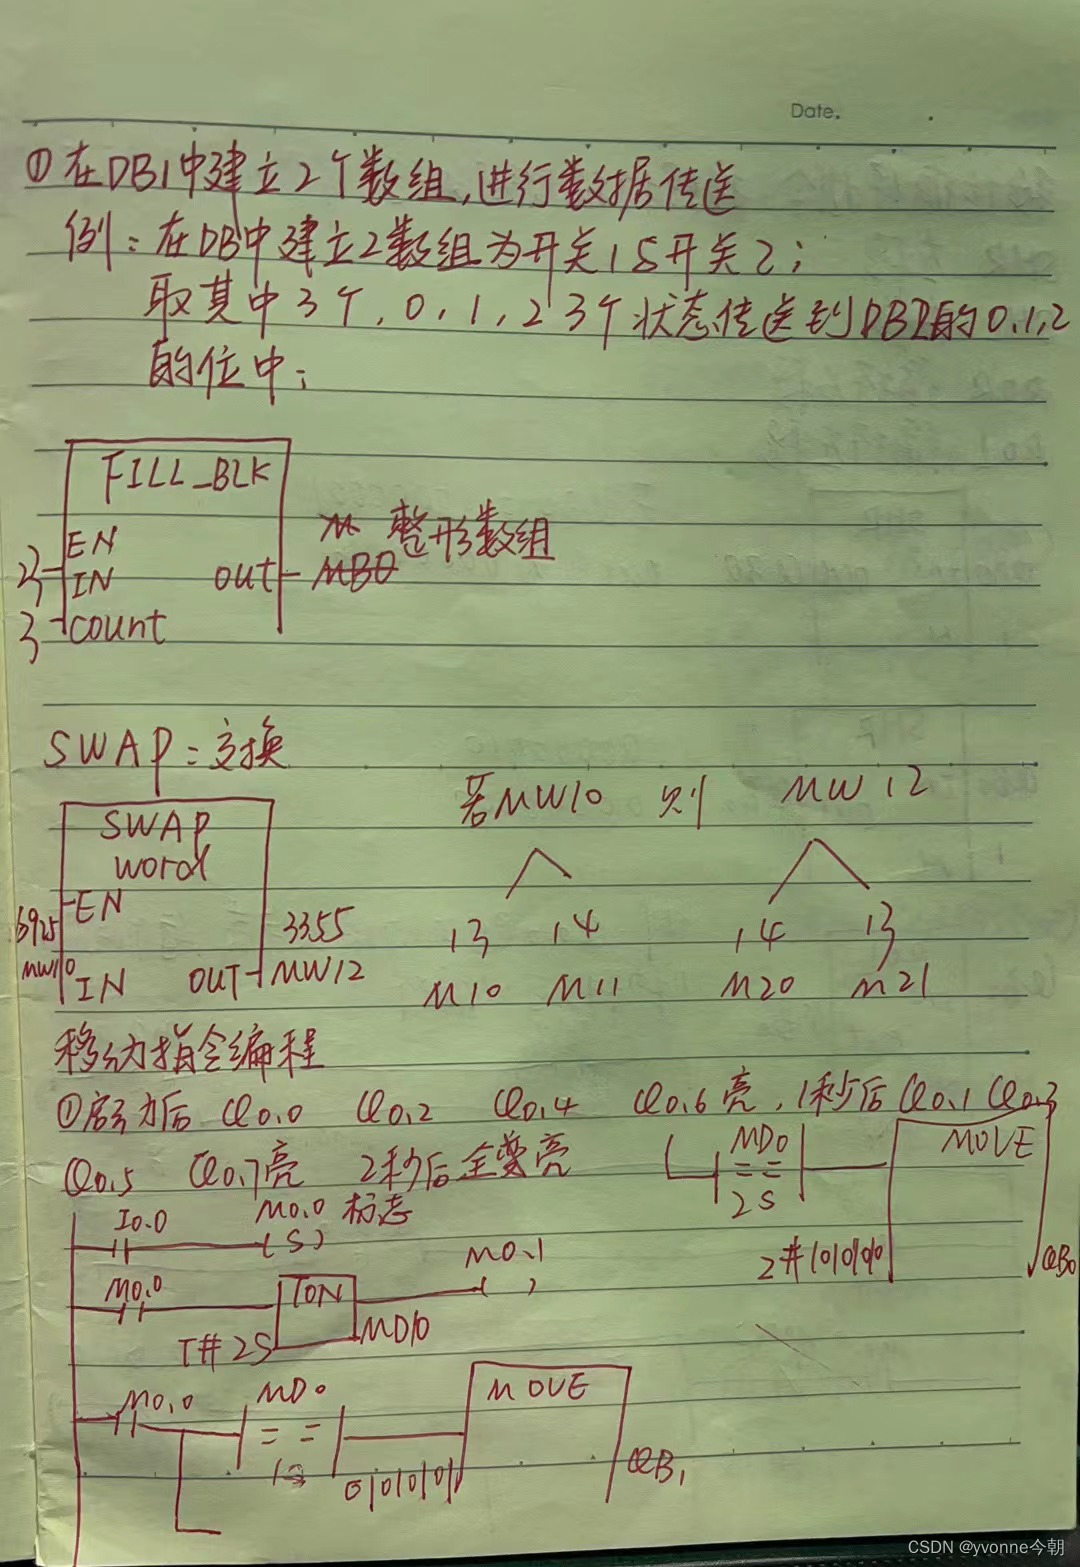 Date.
①在DB1中建立2个数组,进行数据传送
例:在DB中建立2数组为开关1与开关2;
取其中3个,0,1,2 3个状态传送到DB2的0,1,2
的位中;
FILL_BLK
EN
M 整形数组
2 IN OUT MB0
3 count
SWAP:交换
若MW10 则 MW12
SWAP
word
EN
6925 3355 13 14 14 13
MW10 IN OUT MW12
M10 M11 M20 M21
移动指令编程
①启动后 Q0.0 Q0.2 Q0.4 Q0.6亮,1秒后Q0.1 Q0.3
Q0.5 Q0.7亮 2秒后全变亮
MD0 MOVE
==
2S
I0.0 M0.0 标志
(S)
2#101010 QB0
M0.0 TON M0.1
( )
T#2S MD10
M0.0 MD0 MOVE
==
1S
01010101 QB1
CSDN @yvonne今朝